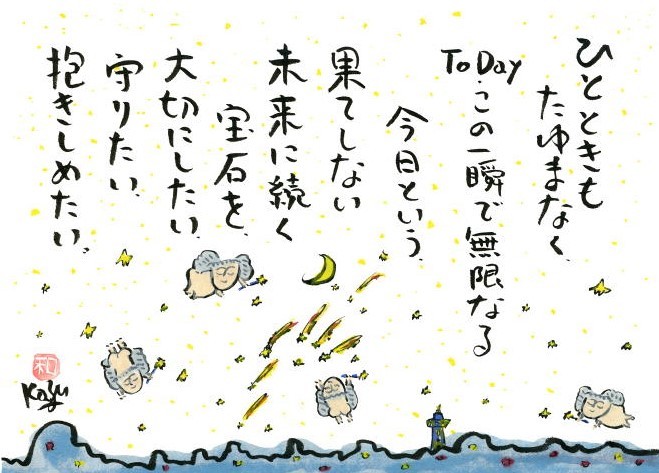 ひとときも
たゆまなく、
ToDay
・この一瞬で無限なる
今日という、
果てしない
未来に続く
宝石を、
大切にしたい、
守りたい、
抱きしめたい、
和
Kazu